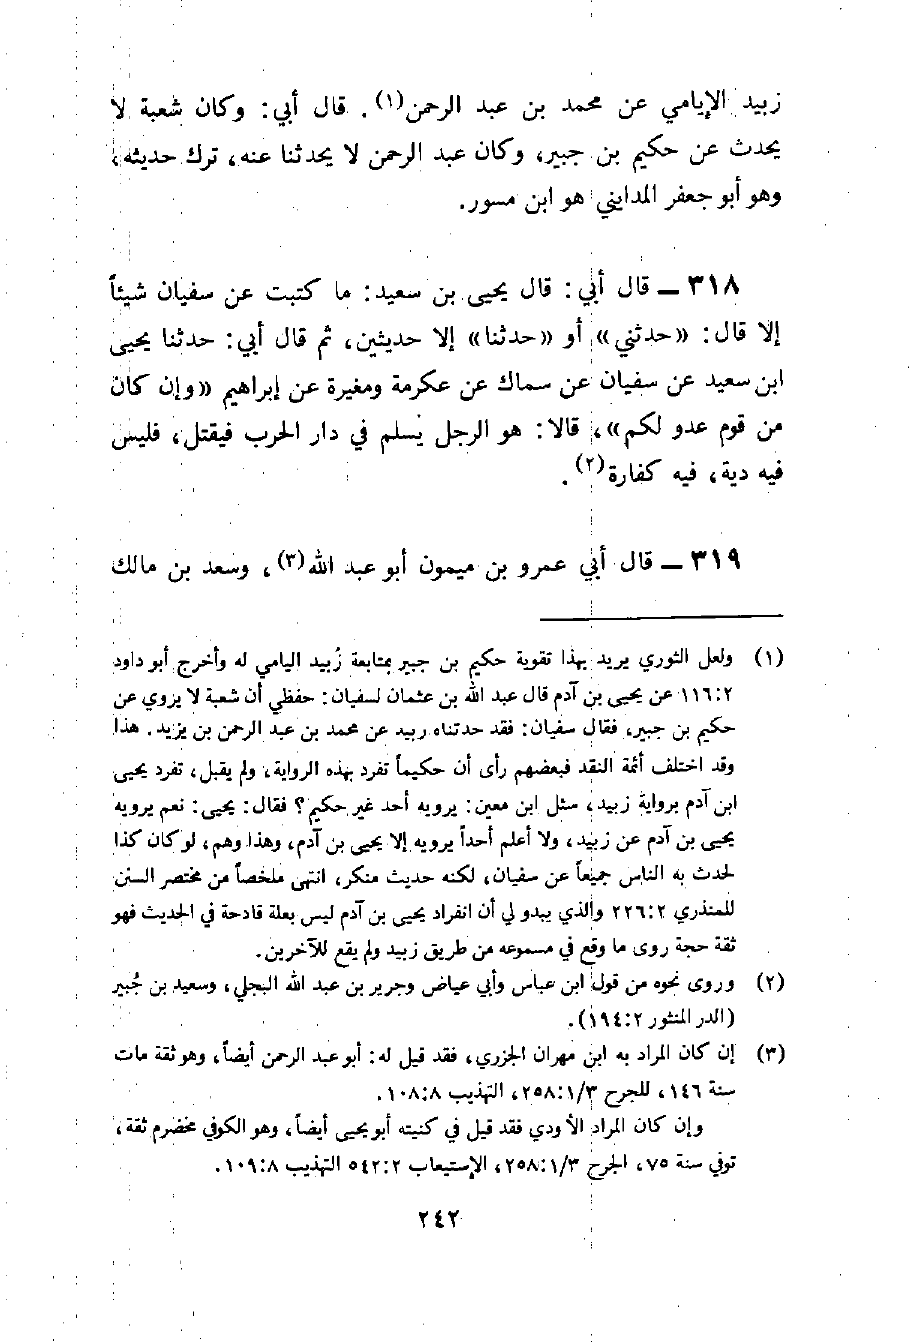 زبيد الإيامي عن محمد بن عبد الرحمن(١). قال أبي: وكان شعبة لا
يحدث عن حكيم بن جبير، وكان عبد الرحمن لا يحدثنا عنه، ترك حديثه،
وهو أبو جعفر المدايني هو ابن مسور.
٣١٨ ـ قال أبي: قال يحيى بن سعيد: ما كتبت عن سفيان شيئاً
إلا قال: «حدثني» أو «حدثنا» إلا حديثين، ثم قال أبي: حدثنا يحيى
ابن سعيد عن سفيان عن سماك عن عكرمة ومغيرة عن إبراهيم «وإن كان
من قوم عدو لكم»، قالا: هو الرجل يُسلم في دار الحرب فيقتل، فليس
فيه دية، فيه كفارة(٢).
٣١٩ ـ قال أبي عمرو بن ميمون أبو عبد الله(٣)، وسعد بن مالك
(١) ولعل الثوري يريد بهذا تقوية حكيم بن جبير بمتابعة زُبيد اليامي له وأخرج أبو داود
١١٦:٢ عن يحيى بن آدم قال عبد الله بن عثمان لسفيان: حفظي أن شعبة لا يروي عن
حكيم بن جبير، فقال سفيان: فقد حدثناه زبيد عن محمد بن عبد الرحمن بن يزيد. هذا
وقد اختلف أئمة النقد فبعضهم رأى أن حكيماً تفرد بهذه الرواية، ولم يقبل، تفرد يحيى
ابن آدم برواية زبيد، سئل ابن معين: يرويه أحد غير حكيم؟ فقال: يحيى: نعم يرويه
يحيى بن آدم عن زبيد، ولا أعلم أحداً يرويه إلا يحيى بن آدم، وهذا وهم، لو كان كذا
لحدث به الناس جميعاً عن سفيان، لكنه حديث منكر، انتهى ملخصاً من مختصر السنن
للمنذري ٢٢٦:٢ والذي يبدو لي أن انفراد يحيى بن آدم ليس بعلة قادحة في الحديث فهو
ثقة حجة روى ما وقع في مسموعه من طريق زبيد ولم يقع للآخرين.
(٢) وروى نحوه من قول ابن عباس وأبي عياض وجرير بن عبد الله البجلي، وسعيد بن جُبير
(الدر المنثور ١٩٤:٢).
(٣) إن كان المراد به ابن مهران الجزري، فقد قيل له: أبو عبد الرحمن أيضاً، وهو ثقة مات
سنة ١٤٦، للجرح ٢٥٨:١/٣، التهذيب ١٠٨:٨.
وإن كان المراد الأودي فقد قيل في كنيته أبو يحيى أيضاً، وهو الكوفي مخضرم ثقة،
توفي سنة ٧٥، الجرح ٢٥٨:١/٣، الإستيعاب ٥٤٢:٢ التهذيب ١٠٩:٨.
٢٤٢